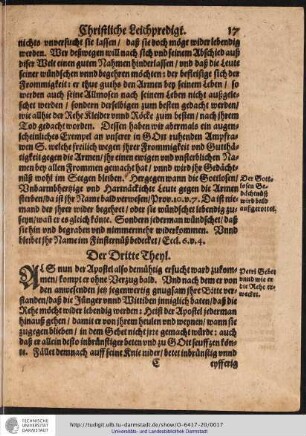 Christliche Leichpredigt. 17
nichts vnversucht sie lassen / daß sie doch möge wider lebendig
werden. Wer deßwegen will nach sich vnd seinem Abschied auß
diser Welt einen guten Nahmen hinderlassen / vnd daß die Leute
seiner wündschen vnnd begehren möchten: der befleissige sich der
Frommigkeit: er thue guths den Armen bey seinem Leben / so
werden auch seine Allmosen nach seinem Leben nicht außgele-
schet werden / sondern derselbigen zum besten gedacht werden /
wie allhie das Rehe Kleider vnnd Röcke zum besten / nach jhrem
Tod gedacht worden. Dessen haben wir abermals ein augen-
scheinliches Exempel an vnserer in GOtt ruhenden
S. welche freilich wegen jhrer Frommigkeit vnd Gutthä-
tigkeit gegen die Armen / jhr einen ewigen vnd vnsterblichen Na-
men bey allen Frommen gemacht hat / vnnd wird jhr Gedächt-
nuß wohl im Seegen bleiben. Hergegen wann die Gottlosen /
Vnbarmhertzige vnd Hartnäckichte Leute gegen die Armen
sterben / da ist jhr Name bald verwesen / Prov. 10. v. 7. Da ist nie-
mand der jhrer wider begehret / oder sie wündschet lebendig zu-
seyn / wañ er es gleich könte. Sondern jederman wündschet / daß
sie hin vnd begraben vnd nimmermehr widerkommen. Vnnd
bleibet jhr Name im Finsternüß bedecket / Eccl. 6. v. 4.
Der Gott-
losen Ge-
dächtnuß
wird bald
außgerottet.
Der Dritte Theyl.
ALS nun der Apostel also demühtig ersucht ward zukom-
men / kompt er ohne Verzug bald. Vnd nach dem er von
den anwesenden jen jegenwertig gnugsam jhre Bitte ver-
standen / daß die Jünger vnnd Wittiben jnniglich baten / daß die
Rehe möcht wider lebendig werden: Heist der Apostel jederman
hinauß gehen / damit er von jhrem heulen vnd weynen / wann sie
zugegen blieben / in dem Gebet nicht jrre gemacht würde: auch
daß er allein desto inbrünstiger beten vnd zu GOtt seufftzen kön-
te. Fället demnach auff seine Knie nider / betet inbrünstig vnnd
Petri Gebet
wird wie er
die Rehe er-
wecket.
C
eyfferig
TECHNISCHE
UNIVERSITÄT
DARMSTADT
http://tudigit.ulb.tu-darmstadt.de/show/O-6417-20/0017
Universitäts- und Landesbibliothek Darmstadt